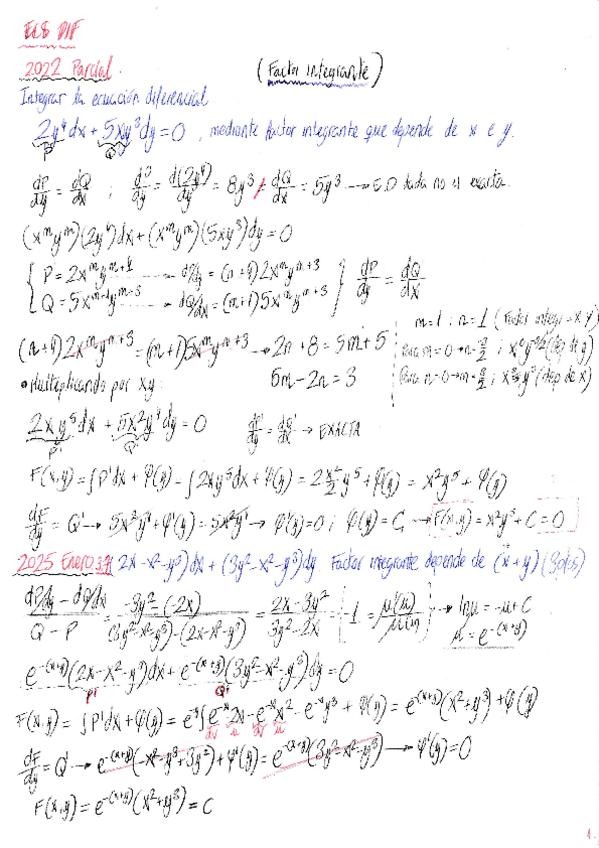 ECS DIF
2022 Parcial. (Factor integrante)
Integrar la ecuación diferencial
2y⁴dx + 5xy³dy = 0, mediante factor integrante que depende de x e y.
P Q
dP/dy = dQ/dx ; dP/dy = d(2y⁴)/dy = 8y³ ≠ dQ/dx = 5y³ → E.D dada no es exacta.
(xᵐyⁿ)(2y⁴)dx + (xᵐyⁿ)(5xy³)dy = 0
P = 2xᵐyⁿ⁺⁴ → dP/dy = (n+4)2xᵐyⁿ⁺³
Q = 5xᵐ⁺¹yⁿ⁺³ → dQ/dx = (m+1)5xᵐyⁿ⁺³ } dP/dy = dQ/dx
(n+4)2xᵐyⁿ⁺³ = (m+1)5xᵐyⁿ⁺³ → 2n + 8 = 5m + 5
5m - 2n = 3
m=1 ; n=1 (Factor integr = x.y)
Para m=0 → n=
Para n=0 → m=
• Multiplicando por xy:
2xy⁵dx + 5x²y⁴dy = 0 dP'/dy = dQ'/dx → EXACTA
P' Q'
F(x,y) = ∫P'dx + φ(y) = ∫2xy⁵dx + φ(y) = 2 x²/2 y⁵ + φ(y) = x²y⁵ + φ(y)
dF/dy = Q' → 5x²y⁴ + φ'(y) = 5x²y⁴ → φ'(y) = 0 ; φ(y) = C, → F(x,y) = x²y⁵ + C = 0
2025 Enero (2x-x²-y³)dx + (3y²-x²-y³)dy Factor integrante depende de (x+y) (3ptos)
dP/dy - dQ/dx / Q - P = -3y² - (-2x) / (3y²-x²-y³)-(2x-x²-y³) = 2x-3y² / 3y²-2x = -1 = μ'(u)/μ(u) → lnμ = -u + C
μ = e^-(x+y)
e^-(x+y)(2x-x²-y³)dx + e^-(x+y)(3y²-x²-y³)dy = 0
P' Q'
F(x,y) = ∫P'dx + φ(y) = e^-y∫e^-x 2x - e^-x x² - e^-x y³ + φ(y) = e^-(x+y)(x²+y³) + φ(y)
dF/dy = Q' → e^-(x+y)(-x²-y³+3y²) + φ'(y) = e^-(x+y)(3y²-x²-y³) → φ'(y) = 0
F(x,y) = e^-(x+y)(x²+y³) = C
1.